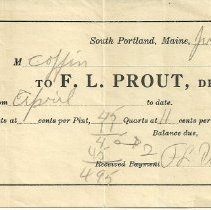 South Portland, Maine,
M Coffin
TO F. L. PROUT, DE
rom April to date.
ts at cents per Pint, 45 Quarts at 11 cents per
Balance due,
Received Payment F L
4 95